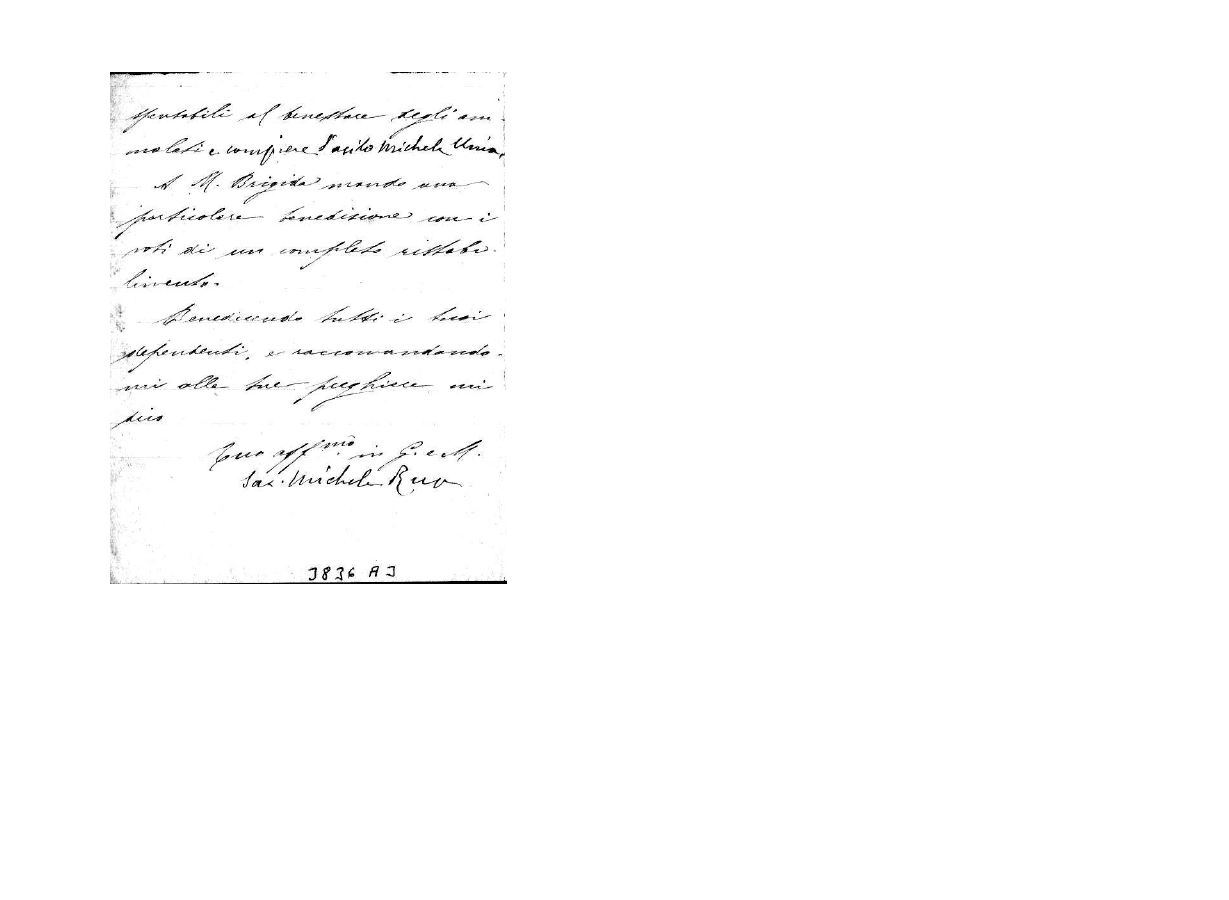 spensabili al benessere degli am-
malati e compiere l'asilo Michele Unia.
A M. Brigida mando una
particolare benedizione con i
voti di un completo ristabi-
limento.
Benedicendo tutti i tuoi
dipendenti, e raccomandando-
mi alle tue preghiere mi
dico
Tuo aff.mo in G. e M.
Sac. Michele Rua
3836 A3